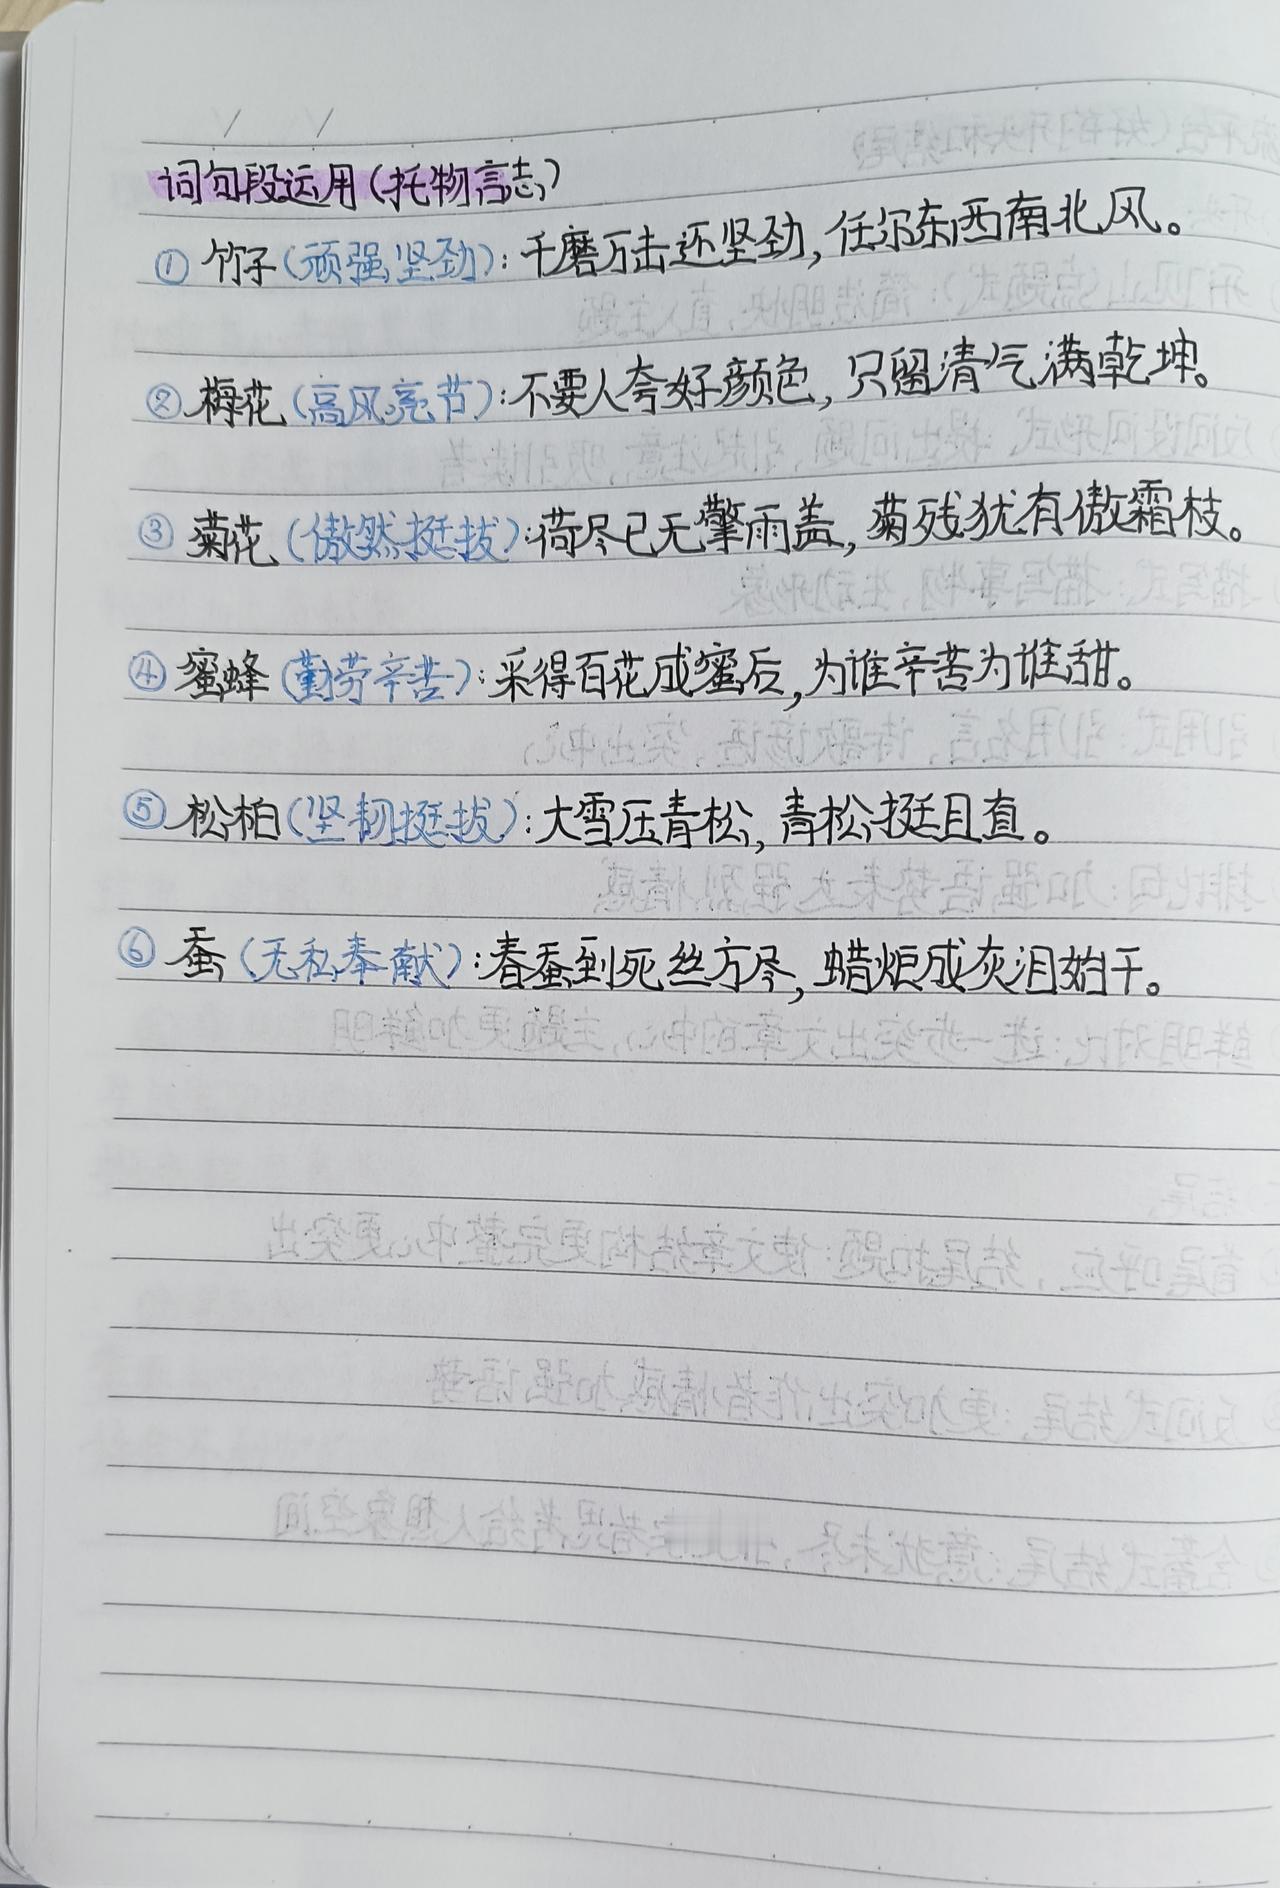 词句段运用(托物言志)
①竹子(顽强坚劲):千磨万击还坚劲,任尔东西南北风。
②梅花(高风亮节):不要人夸好颜色,只留清气满乾坤。
③菊花(傲然挺拔):荷尽已无擎雨盖,菊残犹有傲霜枝。
④蜜蜂(勤劳辛苦):采得百花成蜜后,为谁辛苦为谁甜。
⑤松柏(坚韧挺拔):大雪压青松,青松挺且直。
⑥蚕(无私奉献):春蚕到死丝方尽,蜡炬成灰泪始干。